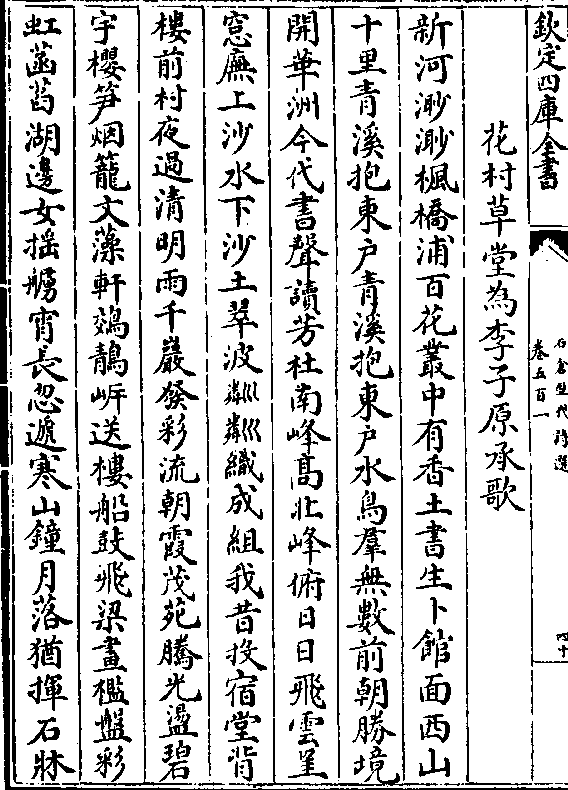 欽定四庫全書
石倉歷代詩選
卷五百一
四十
花村草堂為李子原承歌
新河渺渺楓橋浦百花叢中有香土書生卜館面西山
十里青溪抱東户青溪抱東户水鳥羣無數前朝勝境
開華洲今代書聲讀芳杜南峰高北峰俯日日飛雲望
窓廡上沙水下沙土翠波粼粼織成組我昔投宿堂背
樓前村夜過清明雨千巖發彩流朝霞茂苑騰光盪碧
宇櫻笋烟籠文藻軒鵁鶄㟁送樓船鼓飛梁畫檻盤彩
虹菡萏湖邊女揺艣宵長忽遞寒山鐘月落猶揮石牀